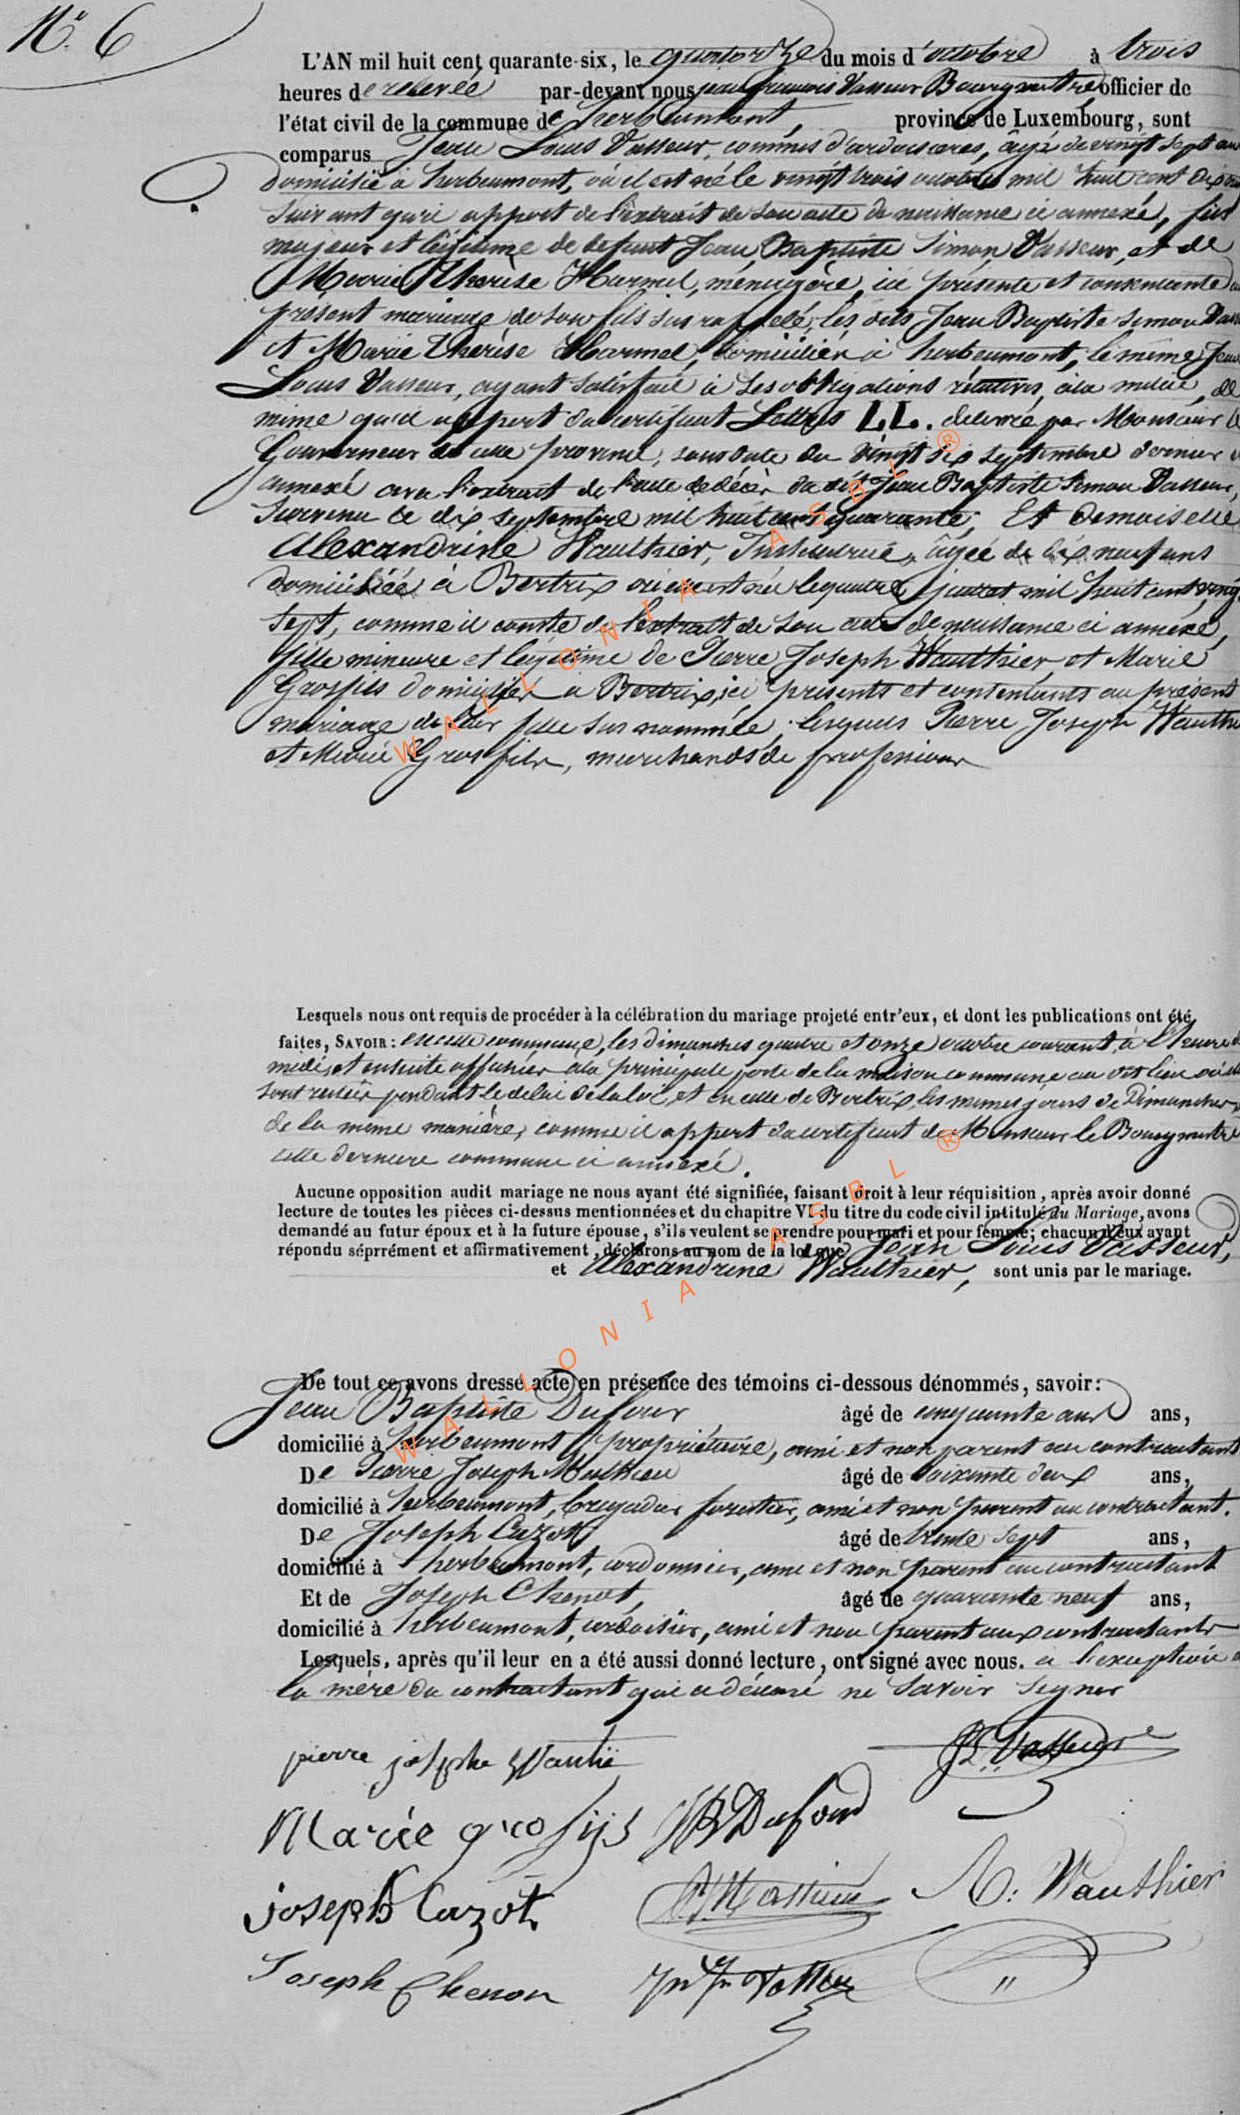 N° 6
L'AN mil huit cent quarante-six, le quatorze du mois d'octobre à trois
heures de relevée par-devant nous jean françois Vasseur Bourgmestre officier de
l'état civil de la commune de herbeumont, province de Luxembourg, sont
comparus Jean Louis Vasseur, commis d'ardoisières, âgé de vingt sept ans
domicilié à herbeumont, où il est né le vingt trois octobre mil huit cent dix
suivant qu'il appert de l'extrait de son acte de naissance ci annexé, fils
majeur et légitime de defunt Jean Baptiste Simon Vasseur, et de
Marie Thérèse Harmel, ménagère, ici présente et consentante au
présent mariage de son fils sus rappelé, les dits Jean Baptiste Simon Vass
et Marie Thérèse Harmel, domiciliés à herbeumont, le même Jean
Louis Vasseur, ayant satisfait à ses obligations rélatives à la milice, de
même qu'il appert du certificat Lettres LL. délivré par Monsieur le
Gouverneur de cette province, sous date du vingt six septembre dernier
annexé avec l'extrait de l'acte de décès du dit Jean Baptiste Simon Vasseur,
survenu le dix septembre mil huit cent quarante; Et Demoiselle
Alexandrine Wauthier, âgée de dix neuf ans
domiciliée à Bertrix où elle est née le quatre mil huit cent vingt
sept, comme il conste de l'extrait de son acte de naissance ci annexé,
fille mineure et légitime de Pierre Joseph Wauthier et Marie
Grosfils domiciliés à Bertrix, ici présents et consentants au présent
mariage de leur fille sus nommée, lesquels Pierre Joseph Wauthi
et Marie Grosfils, marchands de profession
Lesquels nous ont requis de procéder à la célébration du mariage projeté entr'eux, et dont les publications ont été
faites, SAVOIR: en cette commune, les dimanches quatre et onze octobre courant, à l'heure de
midi, et ensuite affichés à la principale porte de la maison commune au dit lieu où elles
sont restées pendant le délai de la loi, et en celle de Bertrix, les mêmes jours de Dimanches
de la même manière, comme il appert du certificat de Monsieur le Bourgmestre
cette dernière commune ci annexé.
Aucune opposition audit mariage ne nous ayant été signifiée, faisant droit à leur réquisition, après avoir donné
lecture de toutes les pièces ci-dessus mentionnées et du chapitre VI du titre du code civil intitulé du Mariage, avons
demandé au futur époux et à la future épouse, s'ils veulent se prendre pour mari et pour femme; chacun d'eux ayant
répondu séprrément et affirmativement, déclarons au nom de la loi que Jean Louis Vasseur,
et Alexandrine Wauthier, sont unis par le mariage.
De tout ce avons dressé acte en présence des témoins ci-dessous dénommés, savoir:
Jean Baptiste Dufour, âgé de cinquante ans ans,
domicilié à herbeumont, propriétaire, ami et non parent au contractant
De Pierre Joseph Mathieu âgé de soixante deux ans,
domicilié à herbeumont, brigadier forestier, ami et non parent au contractant.
De Joseph Cazot âgé de trente sept ans,
domicilié à herbeumont, cordonnier, ami et non parent au contractant
Et de Joseph Chenot, âgé de quarante neuf ans,
domicilié à herbeumont, ardoisier, ami et non parent aux contractants
Lesquels, après qu'il leur en a été aussi donné lecture, ont signé avec nous. a l'exception d
la mère du contractant qui a déclaré ne savoir signer
pierre josephe Wautié
JL Vasseur
Marie grosfijs
JB Dufour
joseph Cazot
PJ Mathieu
A: Wauthier
Joseph Chenon
Jn Fn Vasseur
WALLONIA ASBL ®
WALLONIA ASBL ®